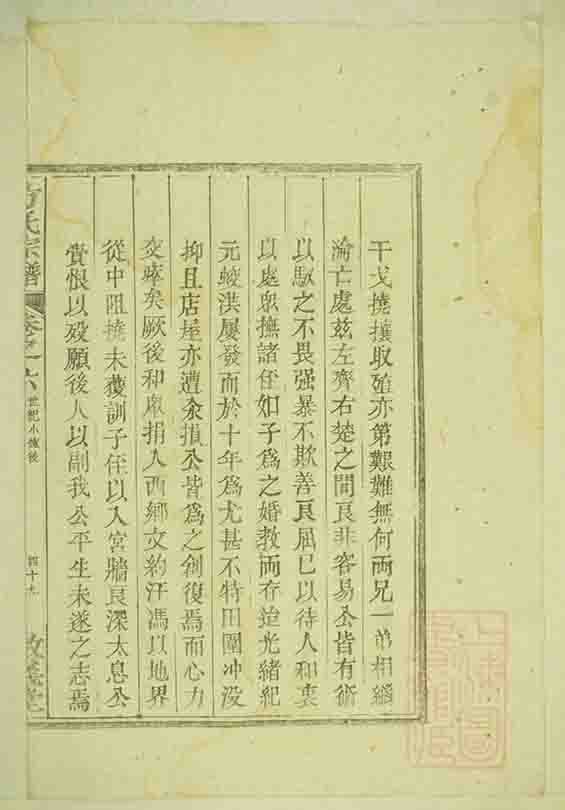 干戈撓攘取殖亦第艱難無何兩兄一弟相繼
淪亡處茲左齊右楚之間良非容易公皆有術
以馭之不畏强暴不欺善良屈已以待人和衷
以處眾撫諸侄如子為之婚教而存迨光緒紀
元蛟洪屢發而於十年為尤甚不特田園冲没
抑且店屋亦遭汆損公皆為之創復焉而心力
交瘁矣厥後和眾捐入西鄉文約汙馮以地界
從中阻撓未獲訓子侄以入宮牆良深太息公
賫恨以歿願後人以副我公平生未遂之志焉
方氏宗譜
卷之一六
世紀小傳後
四十九
敦義堂